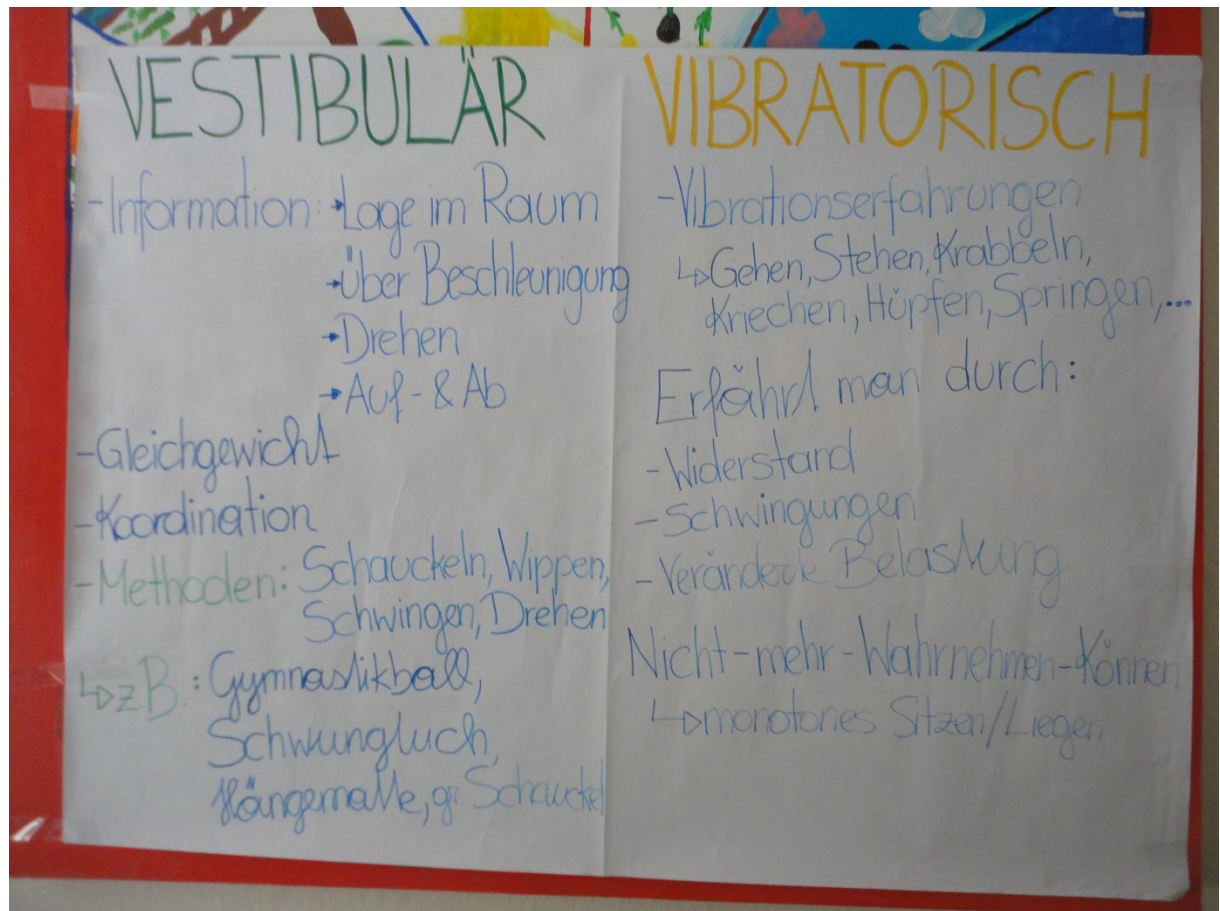 VESTIBULÄR
- Information: → Lage im Raum
→ Über Beschleunigung
→ Drehen
→ Auf- & Ab
- Gleichgewicht
- Koordination
- Methoden: Schauckeln, Wippen,
Schwingen, Drehen
↳ z B.: Gymnastikball,
Schwungtuch,
Hängematte, gr. Schauckel
VIBRATORISCH
- Vibrationserfahrungen
↳ Gehen, Stehen, Krabbeln,
Kriechen, Hüpfen, Springen,...
Erfährt man durch:
- Widerstand
- Schwingungen
- Veränderte Belastung
Nicht-mehr-Wahrnehmen-Können
↳ monotones Sitzen/Liegen